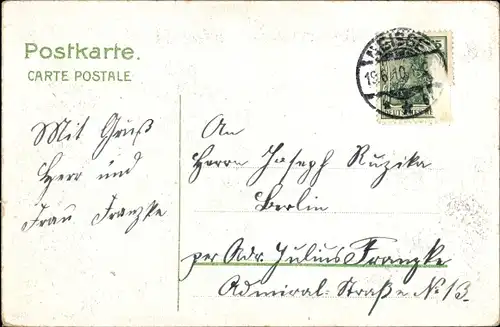 Postkarte.
CARTE POSTALE
NEISSE
19.6.10.
5
Mit Gruß
Herr und
Frau Franzke
An
Herrn Joseph Ruzika
Berlin
per Adr. Julius Franzke
Admiral-Straße No 13.